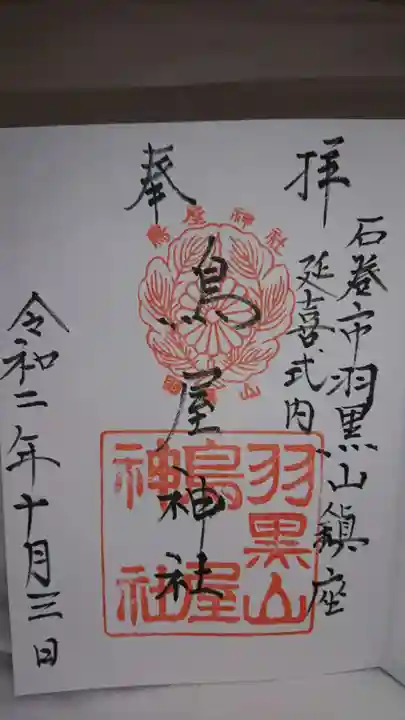 石巻市羽黒山鎮座
延喜式内
奉拝
鳥屋神社
令和二年十月三日
鳥屋神社
羽黒山
鳥屋
神社